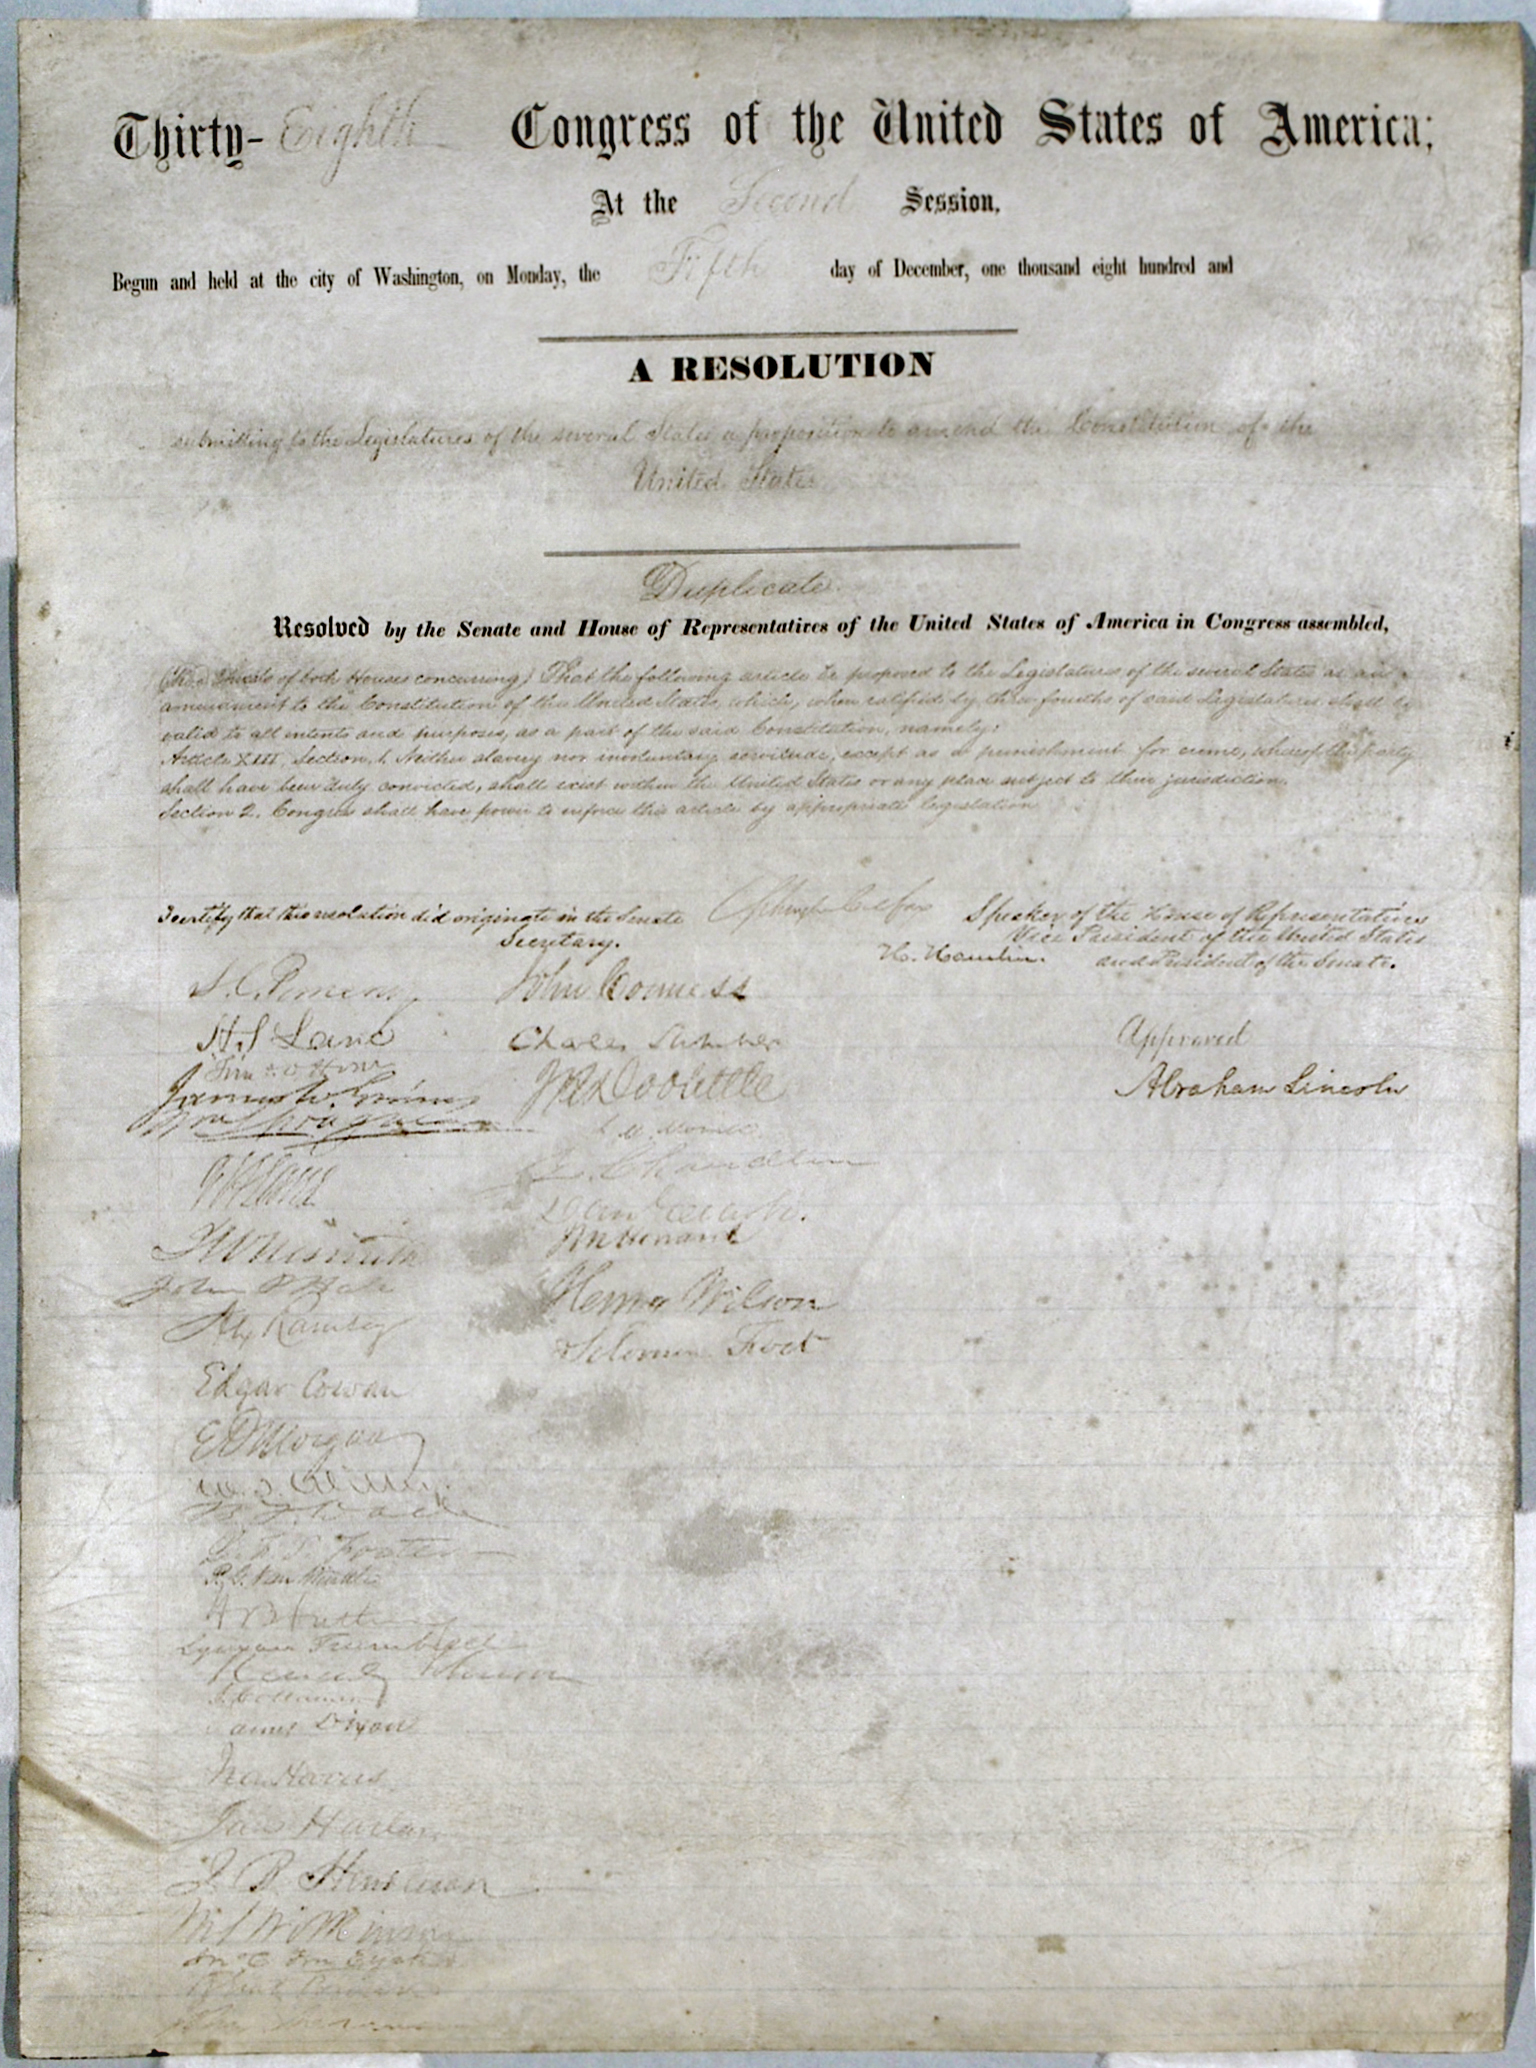 Thirty-Eighth Congress of the United States of America;
At the Second Session,
Begun and held at the city of Washington, on Monday, the Fifth day of December, one thousand eight hundred and
A RESOLUTION
submitting to the Legislatures of the several States a proposition to amend the Constitution of the
United States
Duplicate
Resolved by the Senate and House of Representatives of the United States of America in Congress assembled,
(two thirds of both Houses concurring) That the following article be proposed to the Legislatures of the several States as an
amendment to the Constitution of the United States, which, when ratified by three fourths of said Legislatures shall be
valid to all intents and purposes, as a part of the said Constitution, namely:
Article XIII, Section 1. Neither slavery nor involuntary servitude, except as a punishment for crime, whereof the party
shall have been duly convicted, shall exist within the United States or any place subject to their jurisdiction.
Section 2. Congress shall have power to enforce this article by appropriate legislation
I certify that this resolution did originate in the Senate
Secretary.
Schuyler Colfax Speaker of the House of Representatives
Vice President of the United States
H. Hamlin. and President of the Senate.
Approved
Abraham Lincoln
S. C. Pomeroy
H S Lane
James W. Grimes
Wm Sprague
J W Nesmith
John P Hale
Alex Ramsey
Edgar Cowan
E D Morgan
B. F. Wade
L. F. S. Foster
P. G. Van Winkle
H B Anthony
Lyman Trumbull
Reverdy Johnson
J. Collamer
James Dixon
Ira Harris
Jas Harlan
J. B. Henderson
M S Wilkinson
B Gratz Brown
John Sherman
John Conness
Charles Sumner
J R Doolittle
L M Morrill
Z. Chandler
Daniel Clark.
J M Howard
Henry Wilson
Solomon Foot